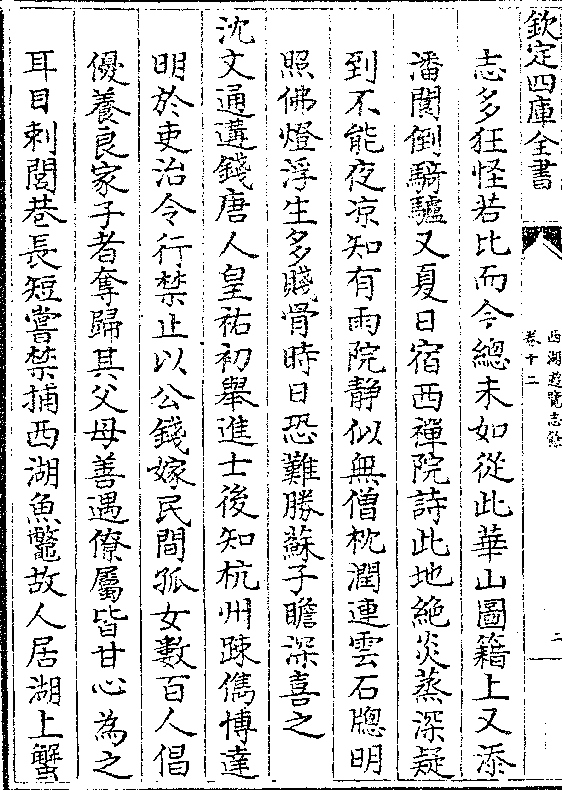 欽定四庫全書
西湖遊覽志餘
卷十二
二
志多狂怪若比而今總未如從此華山圖籍上又添
潘閬倒騎驢又夏日宿西禪院詩此地絶炎蒸深疑
到不能夜凉知有雨院静似無僧枕潤連雲石牕明
照佛燈浮生多賤骨時日恐難勝蘇子瞻深喜之
沈文通遘錢唐人皇祐初舉進士後知杭州踈儁博達
明於吏治令行禁止以公錢嫁民間孤女數百人倡
優養良家子者奪歸其父母善遇僚屬皆甘心為之
耳目刺閭巷長短嘗禁捕西湖魚鼈故人居湖上蟹